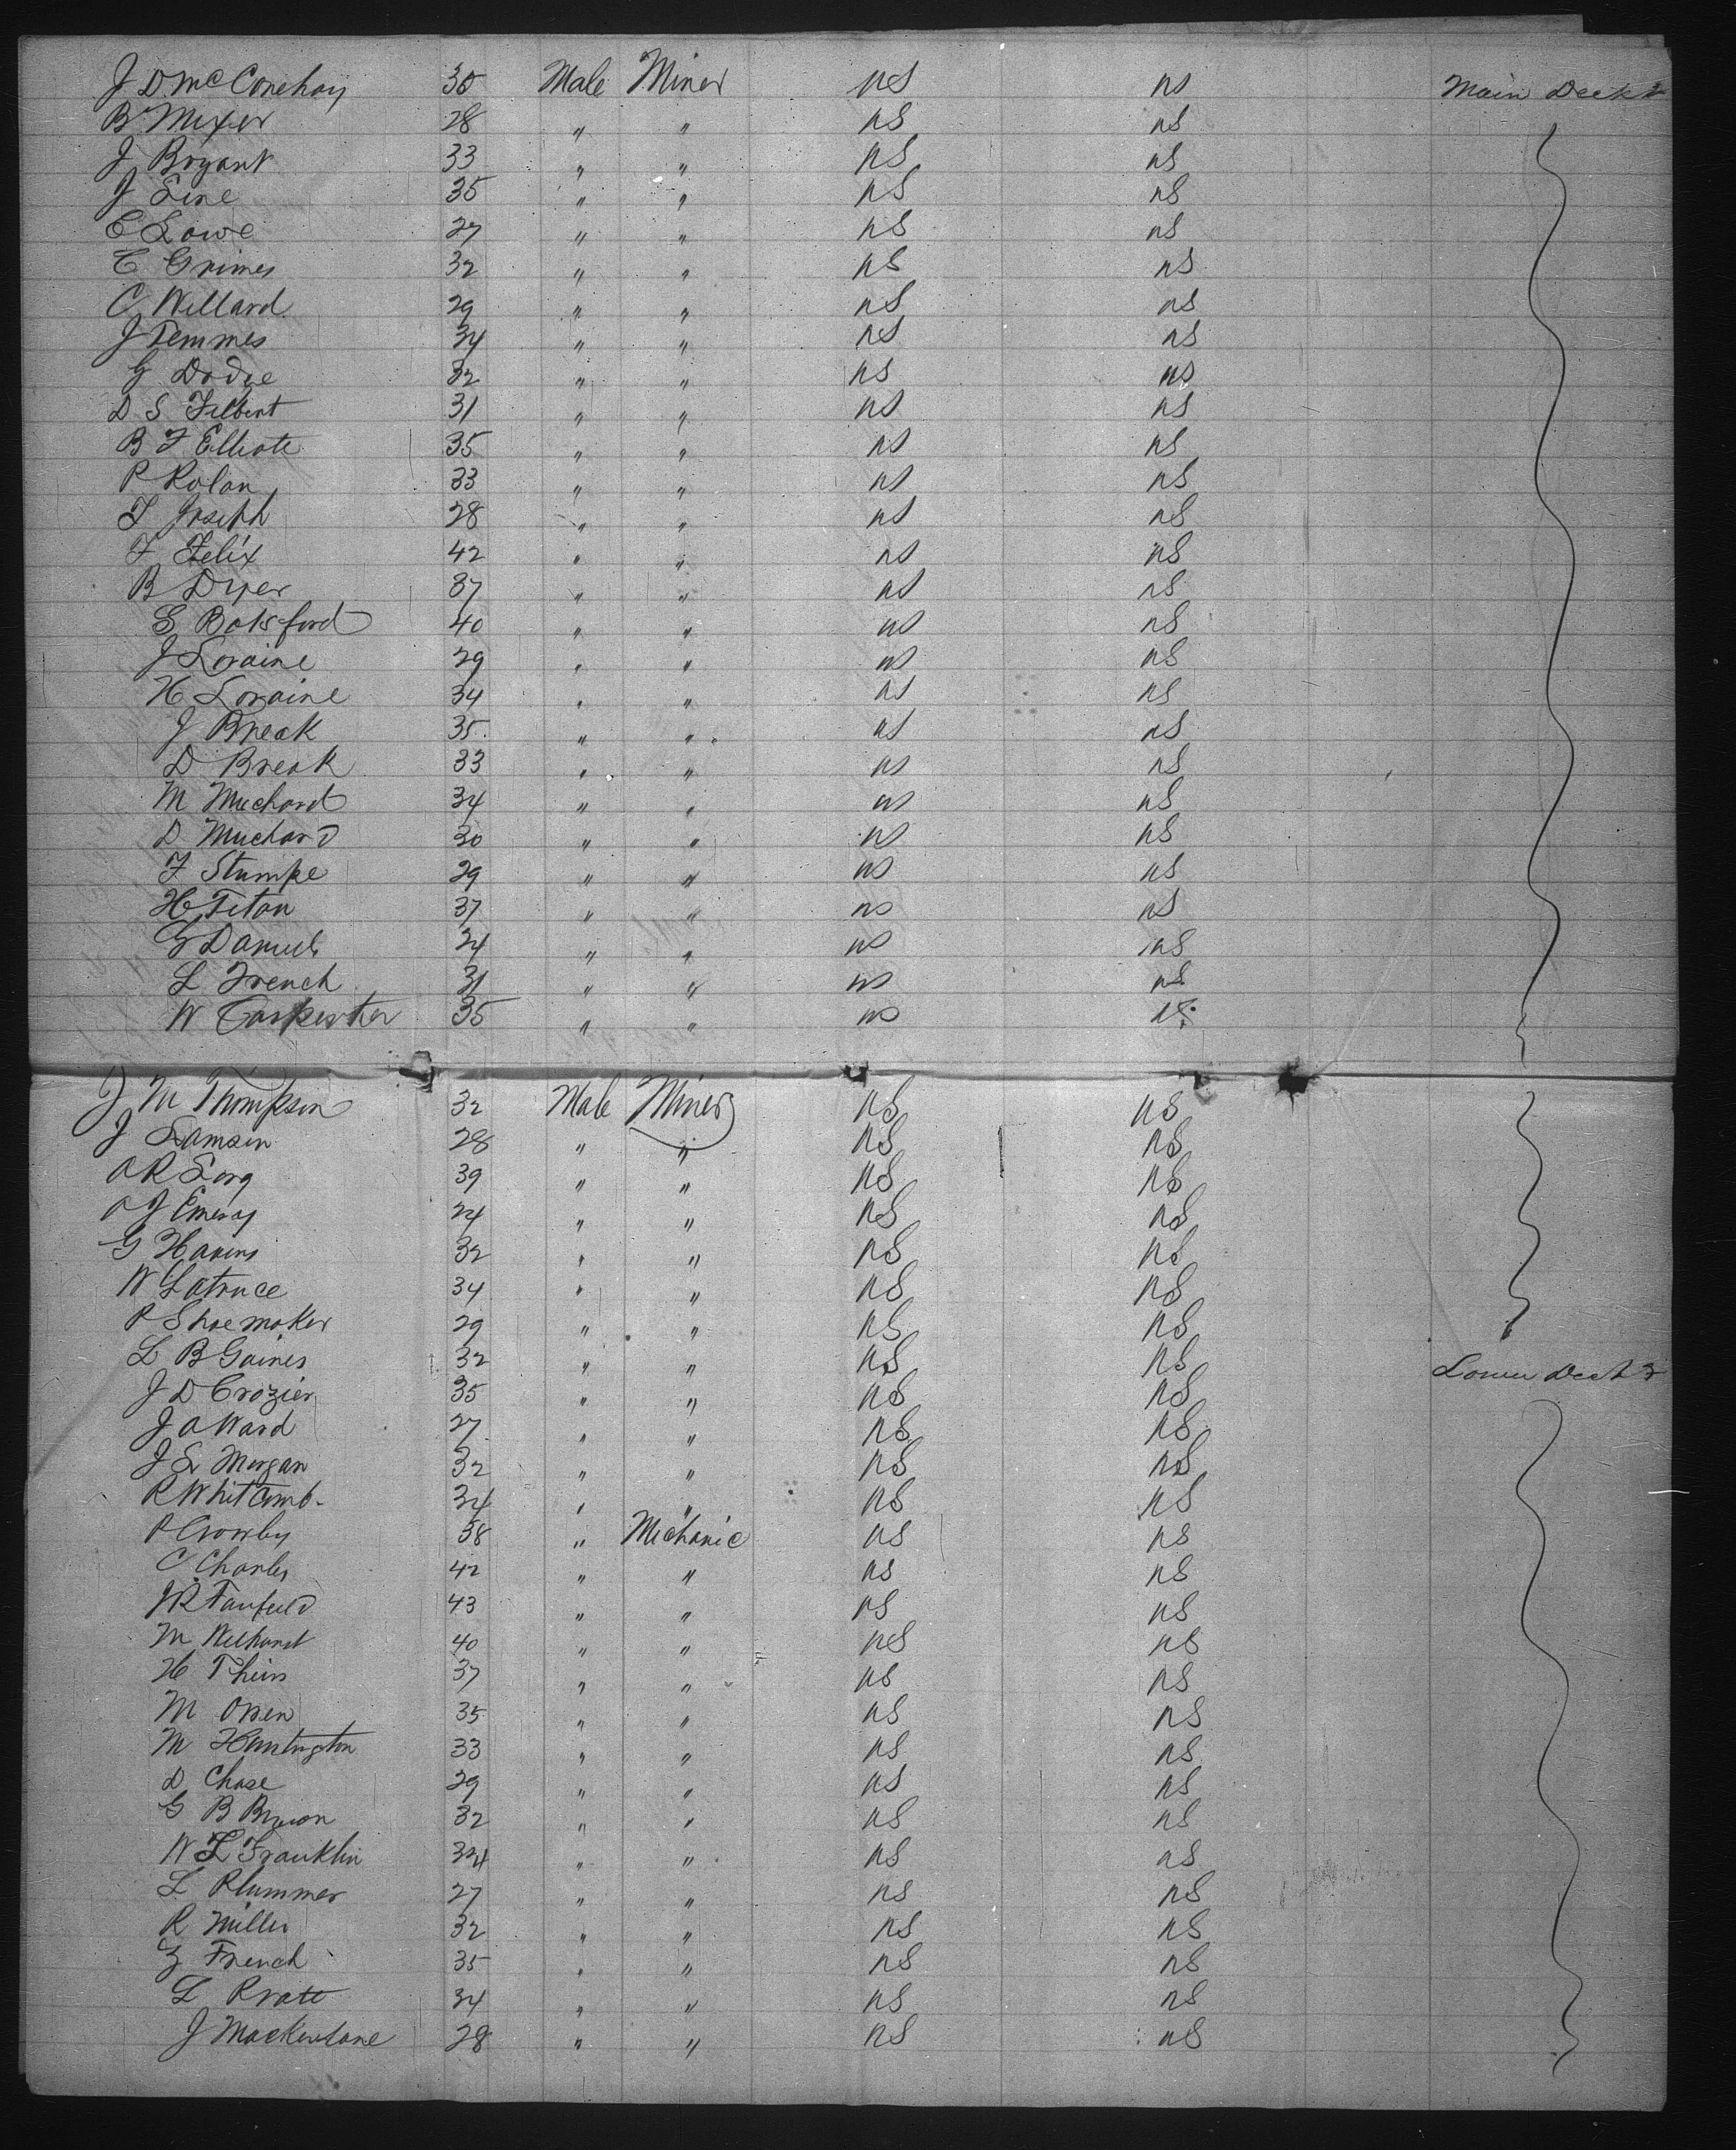 J D McConehay 30 Male Miner US US Main Deck 2
B Mixer 28 " " US US
J Bryant 33 " " US US
J Line 35 " " US US
C Lowe 27 " " US US
C Grimes 32 " " US US
C Willard 29 " " US US
J Temmes 34 " " US US
G Dodge 32 " " US US
D S Filbert 31 " " US US
B F Elliott 35 " " US US
P Rolan 33 " " US US
F Joseph 28 " " US US
F Felix 42 " " US US
B Dyer 37 " " US US
S Botsford 40 " " US US
J Loraine 29 " " US US
H Loraine 34 " " US US
J Break 35 " " US US
D Break 33 " " US US
M Muchard 34 " " US US
D Muchard 30 " " US US
F Stumpe 29 " " US US
H Titon 37 " " US US
G Daniels 24 " " US US
L French 31 " " US US
W Carpenter 35 " " US US
J M Thompson 32 Male Miner US US
J Lamson 28 " " US US
O R Long 39 " " US US
O J Emery 24 " " US US
G Havens 32 " " US US
W Latruce 34 " " US US
P Shoemaker 29 " " US US
L B Gaines 32 " " US US Lower Deck 2
J D Crozier 35 " " US US
J A Ward 27 " " US US
J L Morgan 32 " " US US
R Whitcomb 34 " " US US
P Crowby 38 " Mechanic US US
C Charles 42 " " US US
J R Fanfield 43 " " US US
M Wilhurst 40 " " US US
H Thein 37 " " US US
M Owen 35 " " US US
M Huntington 33 " " US US
D Chase 29 " " US US
G B Brown 32 " " US US
W L Franklin 34 " " US US
L Plummer 27 " " US US
R Miller 32 " " US US
Z French 35 " " US US
L Pratt 34 " " US US
J Mackentane 28 " " US US